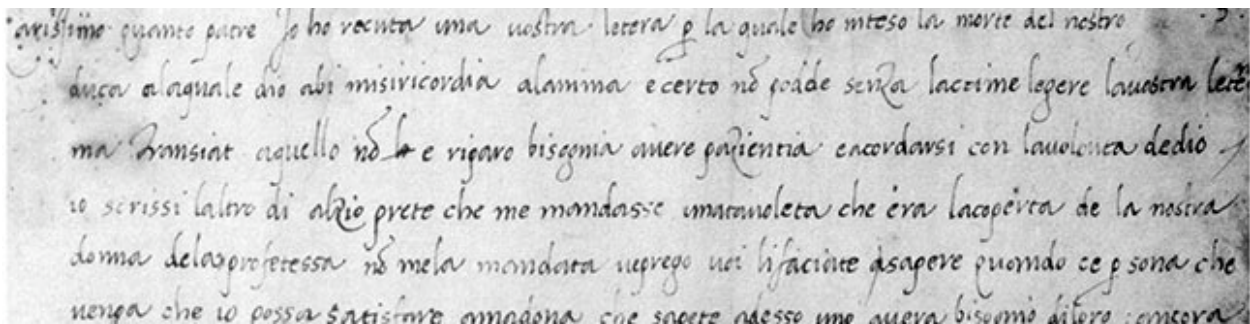 carissimo quanto patre Io ho receuta una vostra letera p la quale ho inteso la morte del nostro
duca alaquale dio abi misiricordia alanima e certo nō podde senza lacrime legere lavostra letera
ma transiat aquello nō e riparo bisognia avere pazientia eacordarsi con lavolonta dedio
io scrissi laltro di alzio prete che me mandasse una tavoleta che era lacoperta de la nostra
donna delaprofetessa nō mela mandata veprego voi lifaciate asapere quando ce p sona che
venga che io possa satisfare amadona che sapete adesso uno avera bisognio diloro ancora